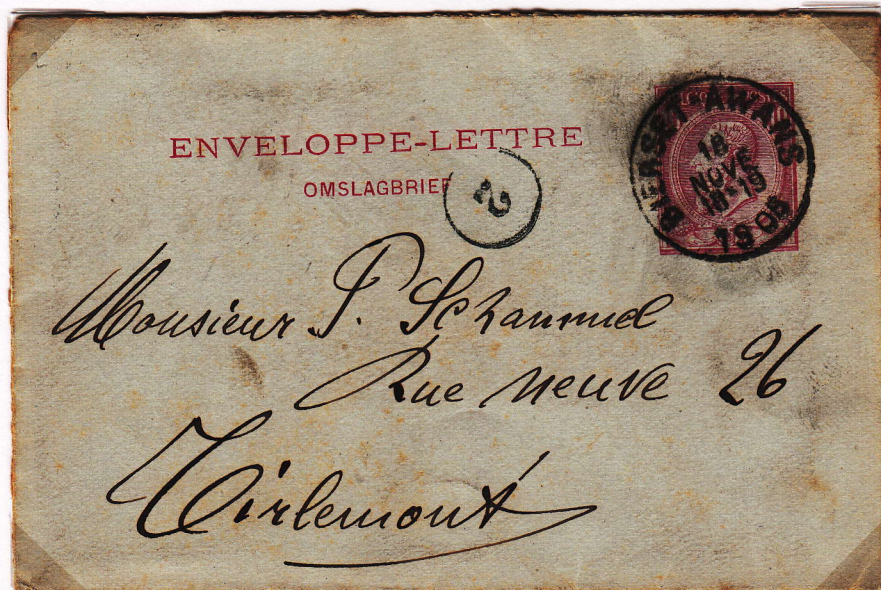 ENVELOPPE-LETTRE
OMSLAGBRIEF
2
BIERSET-AWANS
18
NOVE
18-19
1908
Monsieur P. Schammel
Rue neuve 26
Tirlemont